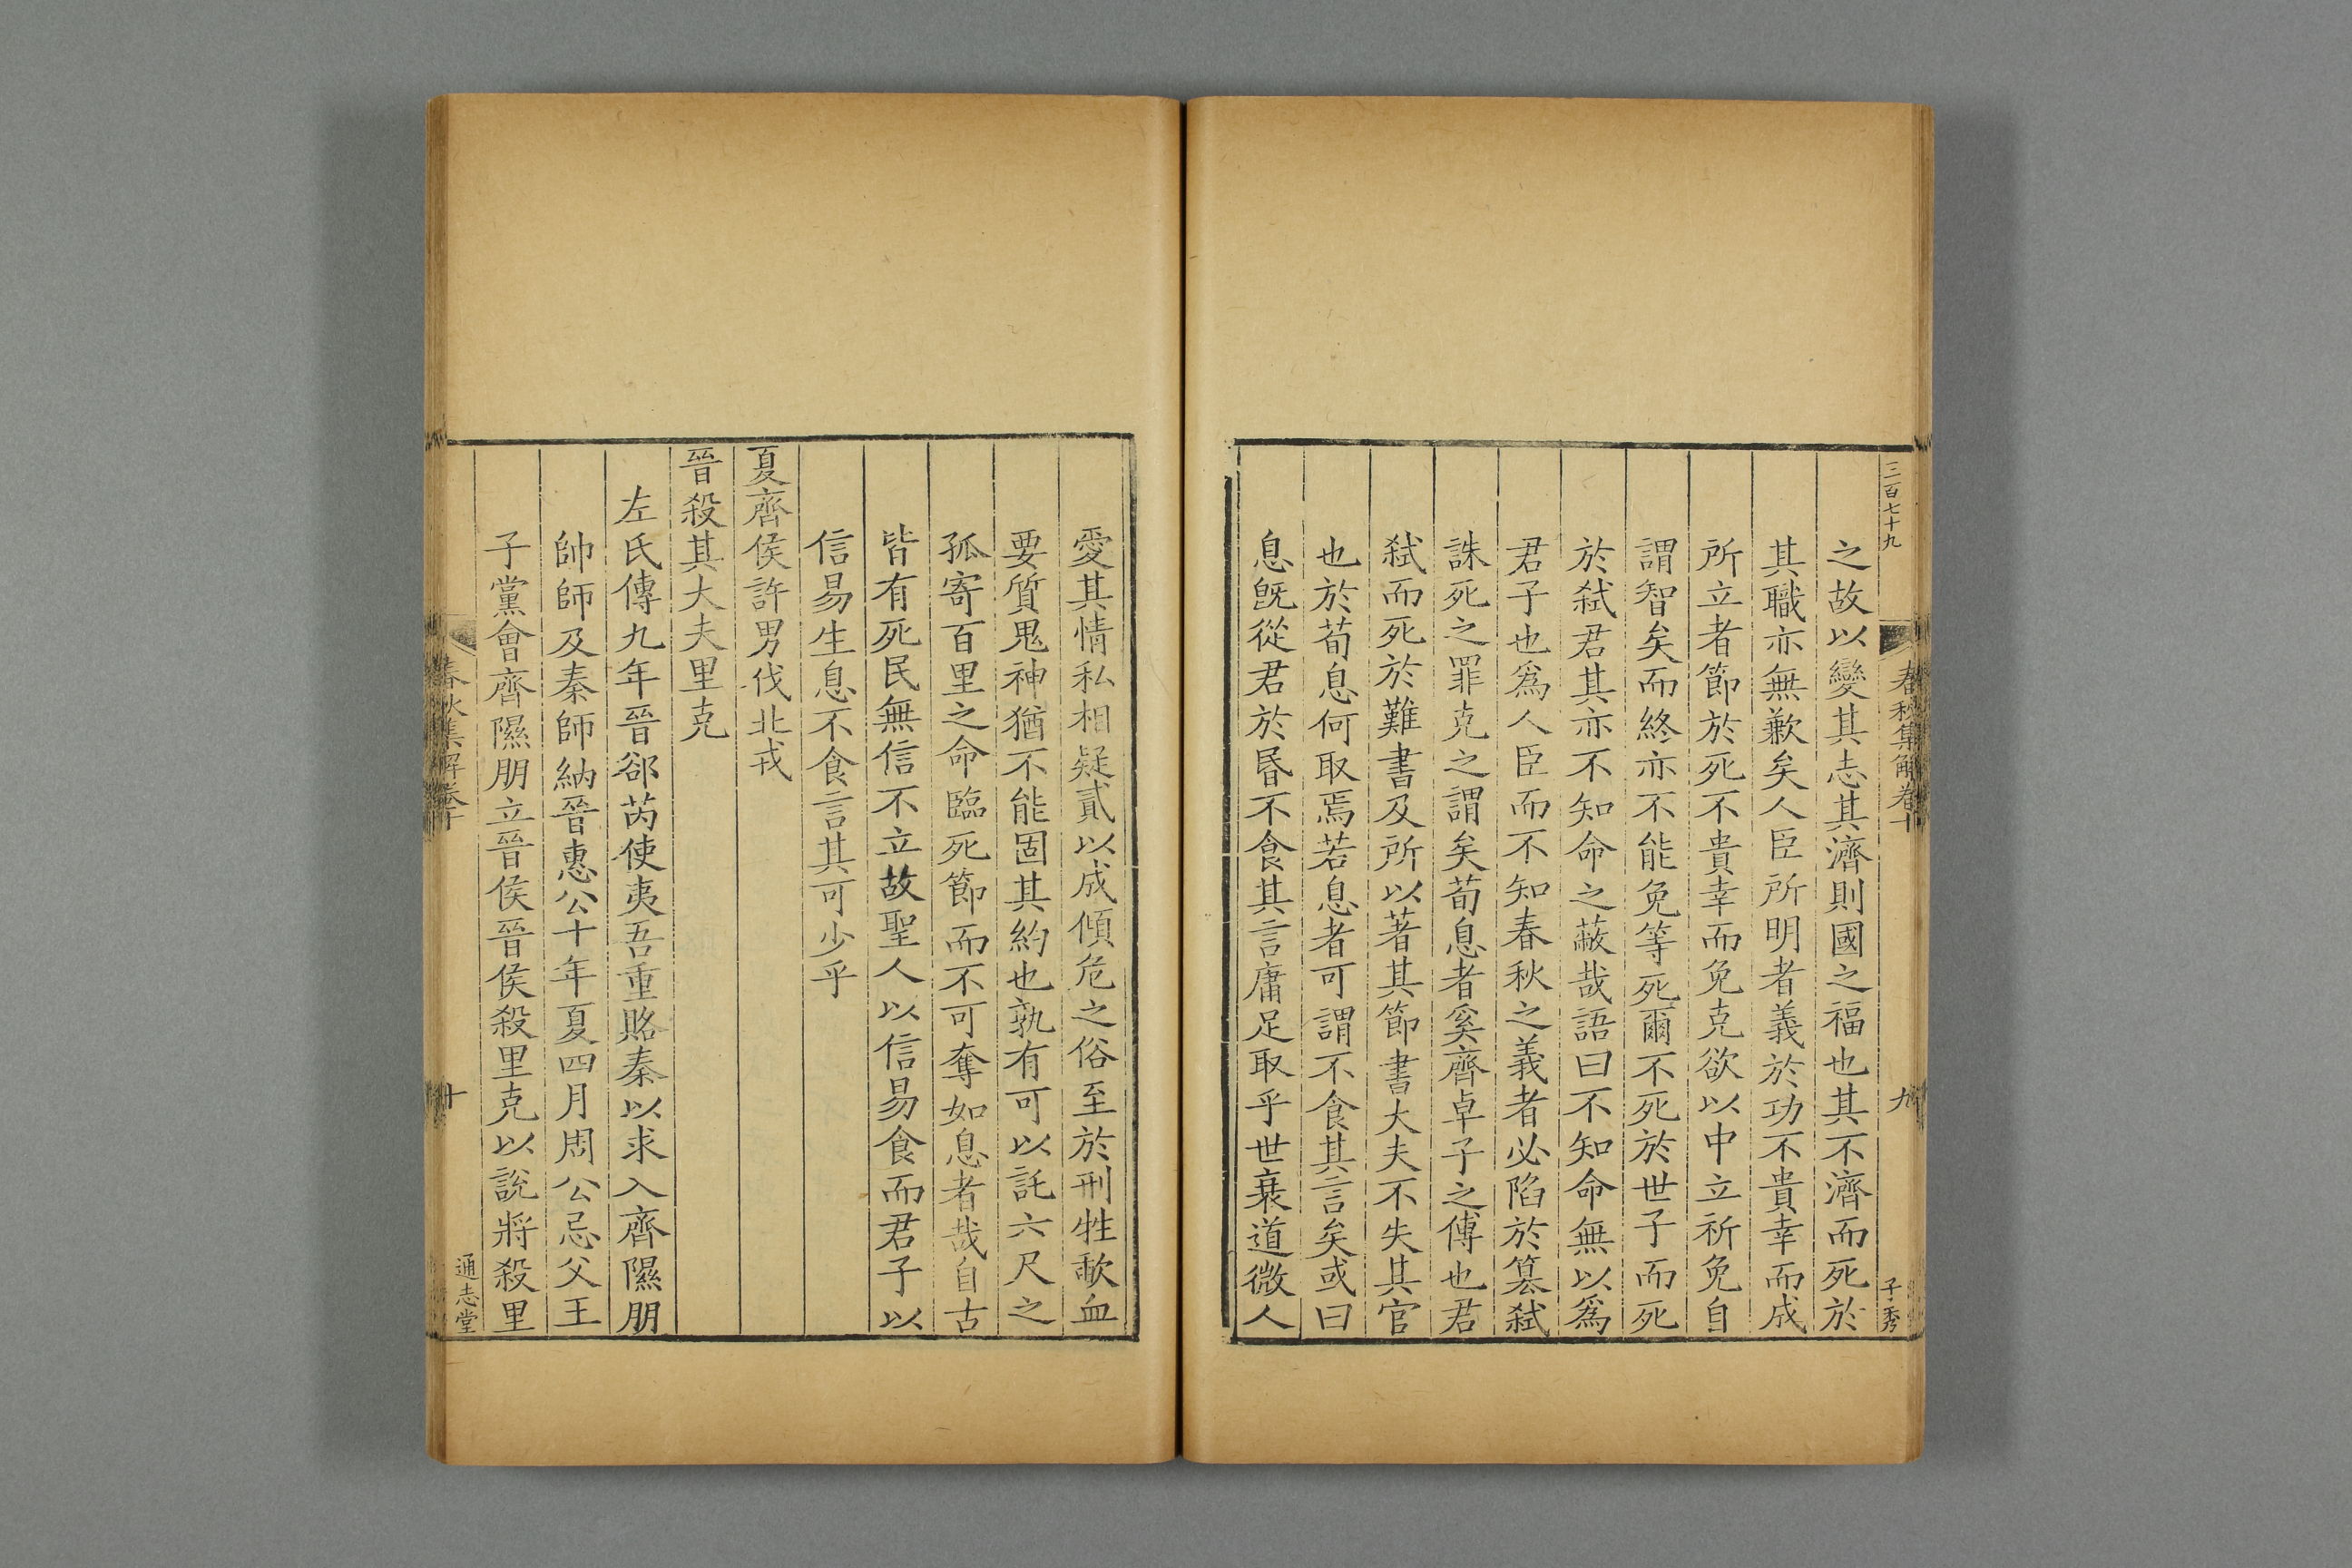 三百七十九
春秋集解卷十
九
子秀
之故以變其志其濟則國之福也其不濟而死於
其職亦無歉矣人臣所明者義於功不貴幸而成
所立者節於死不貴幸而免克欲以中立祈免自
謂智矣而終亦不能免等死爾不死於世子而死
於弑君其亦不知命之蔽哉語曰不知命無以爲
君子也爲人臣而不知春秋之義者必陷於簒弑
誅死之罪克之謂矣荀息者奚齊卓子之傅也君
弑而死於難書及所以著其節書大夫不失其官
也於荀息何取焉若息者可謂不食其言矣或曰
息旣從君於昬不食其言庸足取乎世衰道微人
愛其情私相疑貳以成傾危之俗至於刑牲歃血
要質鬼神猶不能固其約也孰有可以託六尺之
孤寄百里之命臨死節而不可奪如息者哉自古
皆有死民無信不立故聖人以信易食而君子以
信易生息不食言其可少乎
夏齊侯許男伐北戎
晉殺其大夫里克
左氏傳九年晉郤芮使夷吾重賂秦以求入齊隰朋
帥師及秦師納晉惠公十年夏四月周公忌父王
子黨會齊隰朋立晉侯晉侯殺里克以說將殺里
春秋集解卷十
十
通志堂